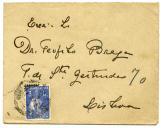 Dr. Teofilo Braga
T. de Sta Gertrudes 70
Lisboa